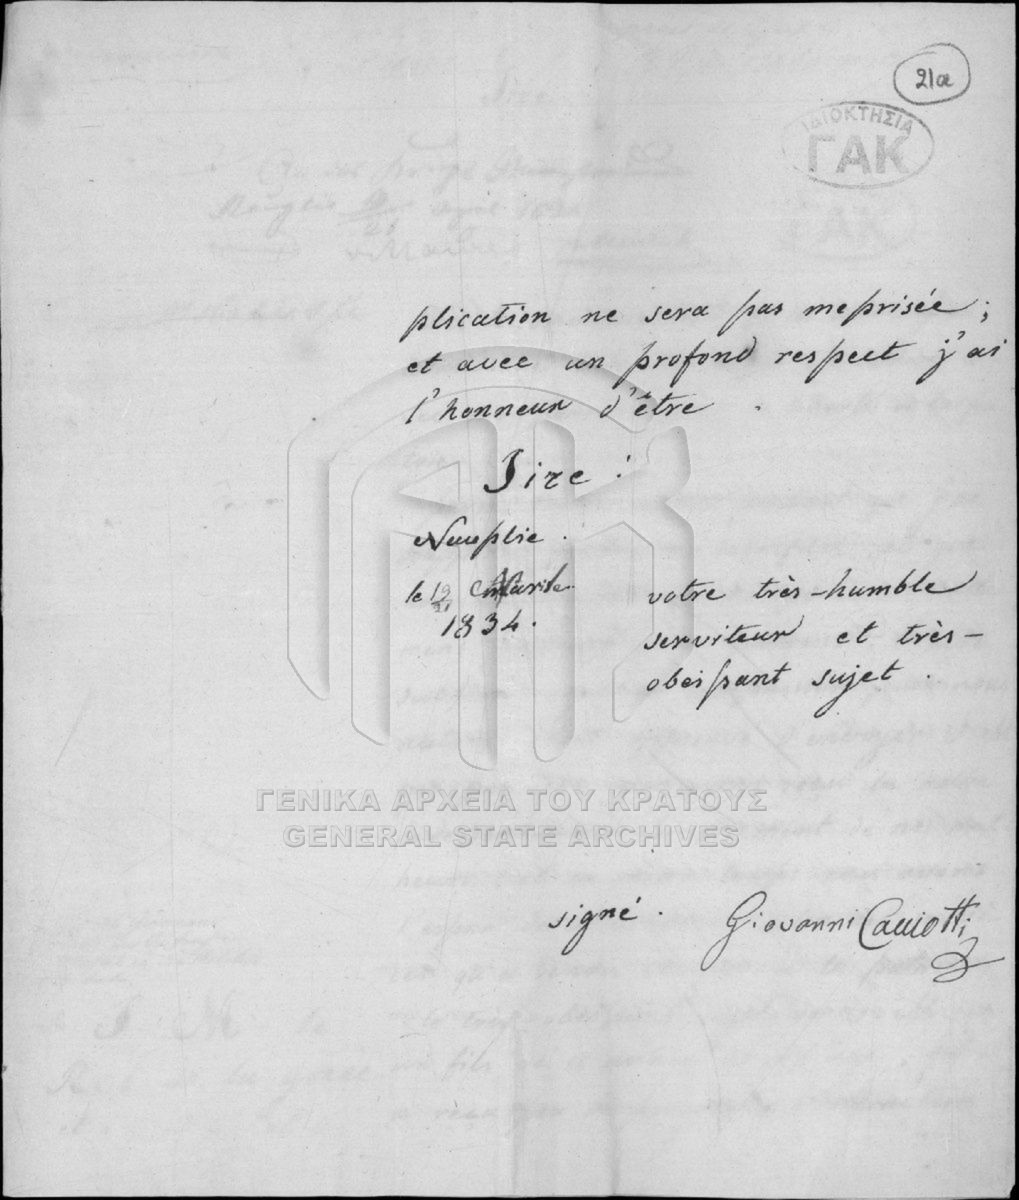 21α
ΙΔΙΟΚΤΗΣΙΑ
ΓΑΚ
plication ne sera pas meprisée ;
et avec un profond respect j'ai
l'honneur d'être .
Sire :
Nauplie .
le 19/31
1834.
votre très-humble
serviteur et très-
obeissant sujet .
ΓΕΝΙΚΑ ΑΡΧΕΙΑ ΤΟΥ ΚΡΑΤΟΥΣ
GENERAL STATE ARCHIVES
signé . Giovanni